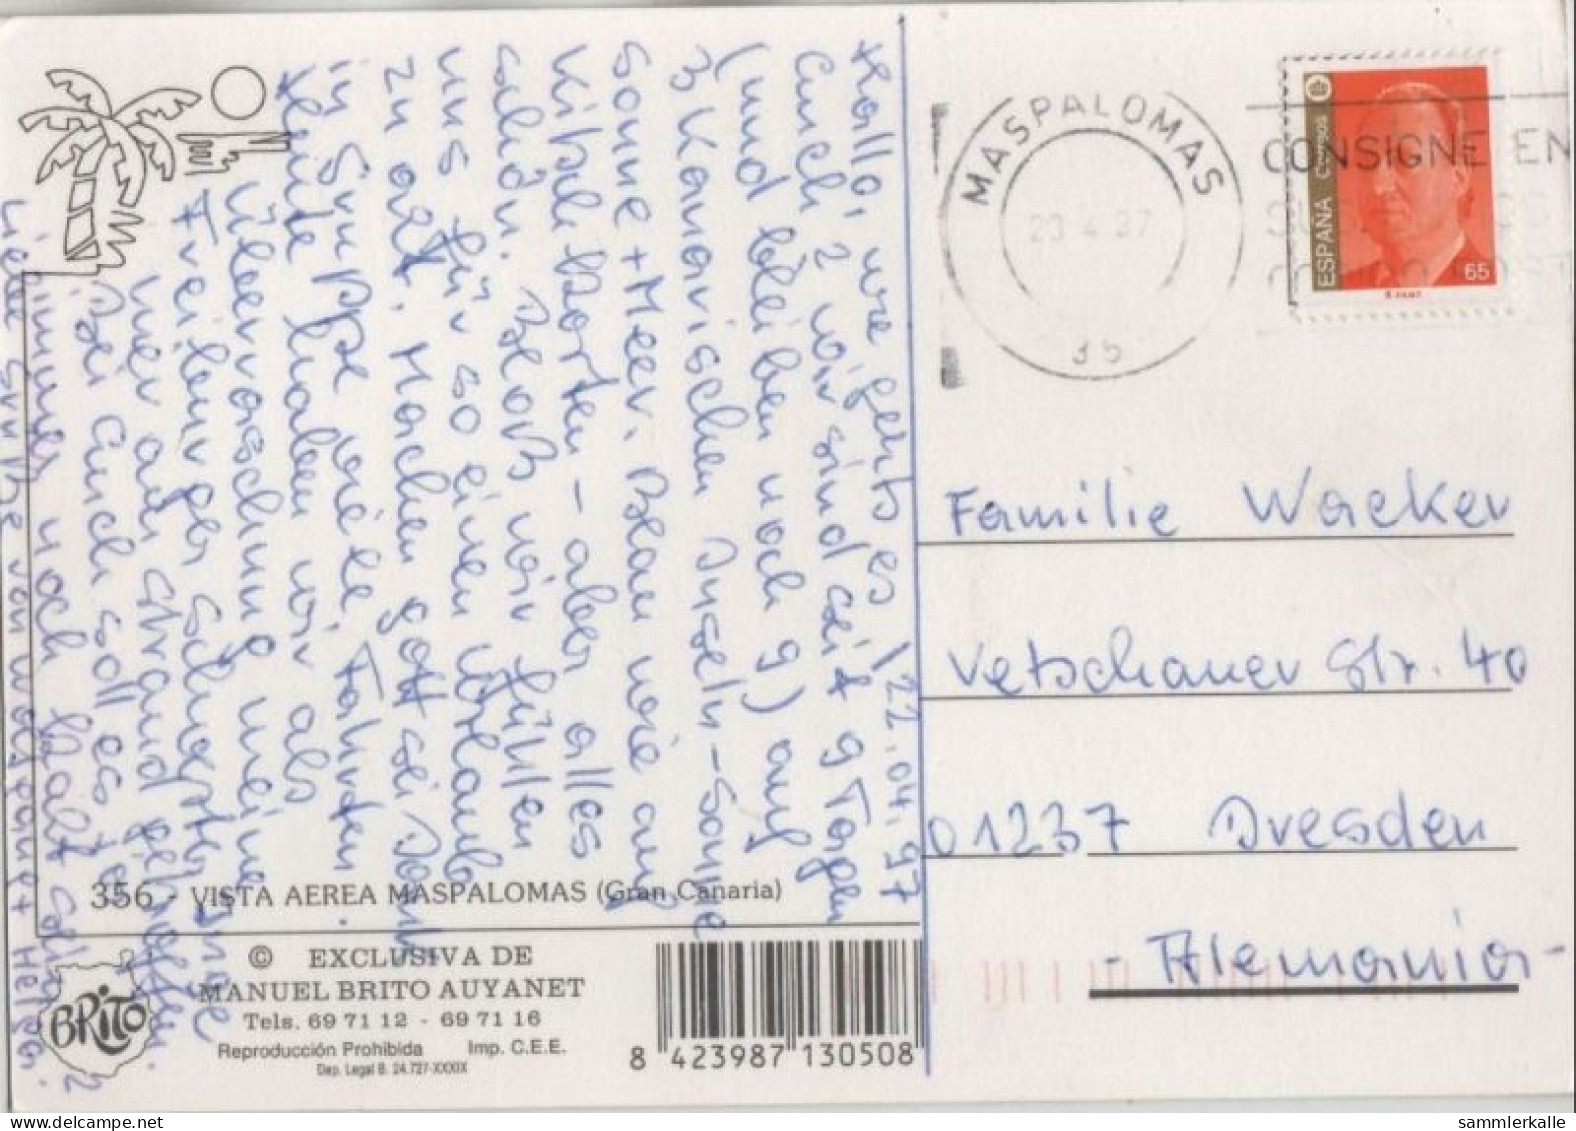 22.04.97
Hallo, wie geht's es
Euch 2 wir sind seit 9 Tagen
(und bleiben noch 9) auf
3 Kanarischen Inseln - Sonne
Sonne + Meer. Blau wie auf
Kitschkarten - aber alles
schön. Bloß wir fühlen
uns für so einen Urlaub
zu alt. Machen gott sei Dank
in Gruppe viele Fahrten.
Heute haben wir als
Überraschung meine
Freiberger Schwester Inge
hier am Strand getroffen
Bei Euch soll es ja
immer noch kalt sein
Liebe Grüße von Margaret + Helga.
356 - VISTA AEREA MASPALOMAS (Gran Canaria)
© EXCLUSIVA DE
MANUEL BRITO AUYANET
Tels. 69 71 12 - 69 71 16
Reproducción Prohibida Imp. C.E.E.
Dep. Legal B. 24.727-XXXIX
BRITO
8 423987 130508
MASPALOMAS
35
CONSIGNE EN
ESPAÑA Correos
65
Familie Wacker
Vetschauer Str. 40
01237 Dresden
- Alemania -
sammlerkalle